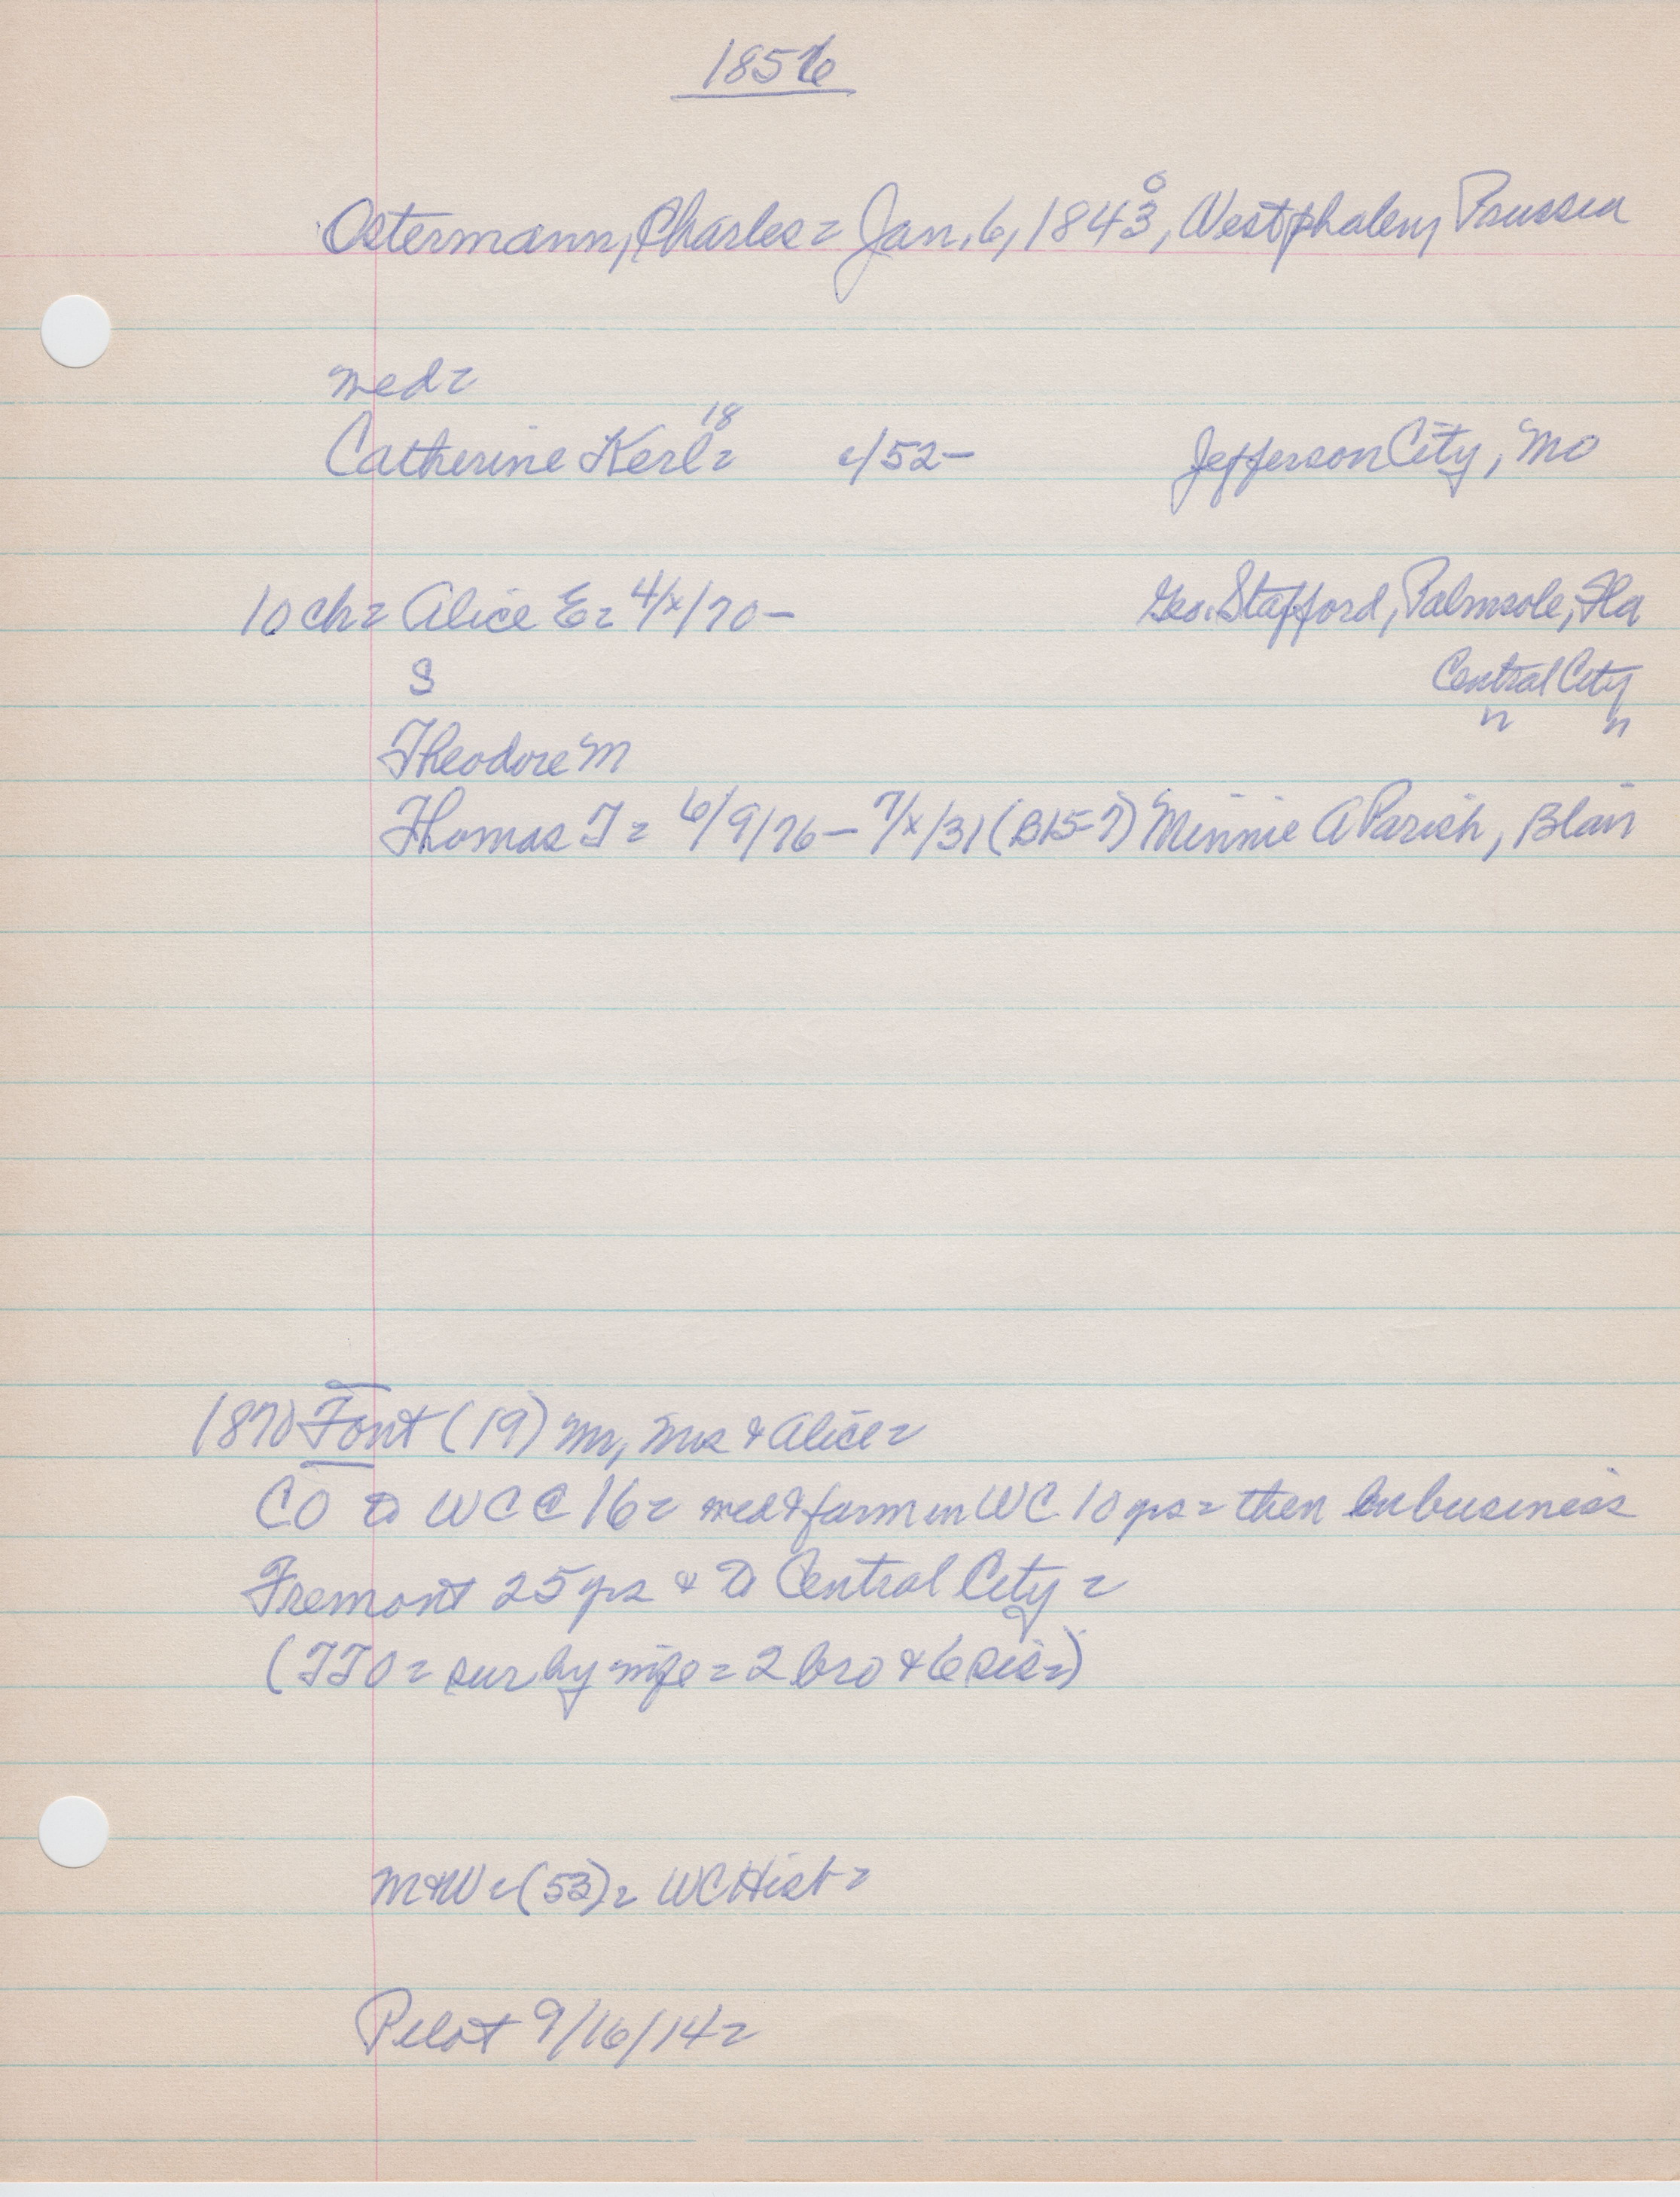 1856
Ostermann, Charles = Jan. 6, 1843, Westphalen, Prussia
0
med =
18
Catherine Kerl = c/52— Jefferson City, Mo
10 ch = Alice E = 4/x/70— Geo. Stafford, Palmsole, Fla
S Central City
" "
Theodore M
Thomas T = 6/9/76 — 7/x/31 (B15-7) Minnie A Parish, Blair
1870 Font (19) Mr, Mrs & Alice =
CO to WC @ 16 = med & farm in WC 10 yrs = then in business
Fremont 25 yrs & to Central City =
(TTO = sur by wife = 2 bro & 6 sis =)
M&W = (53) = WC Hist =
Pilot 9/16/14 =